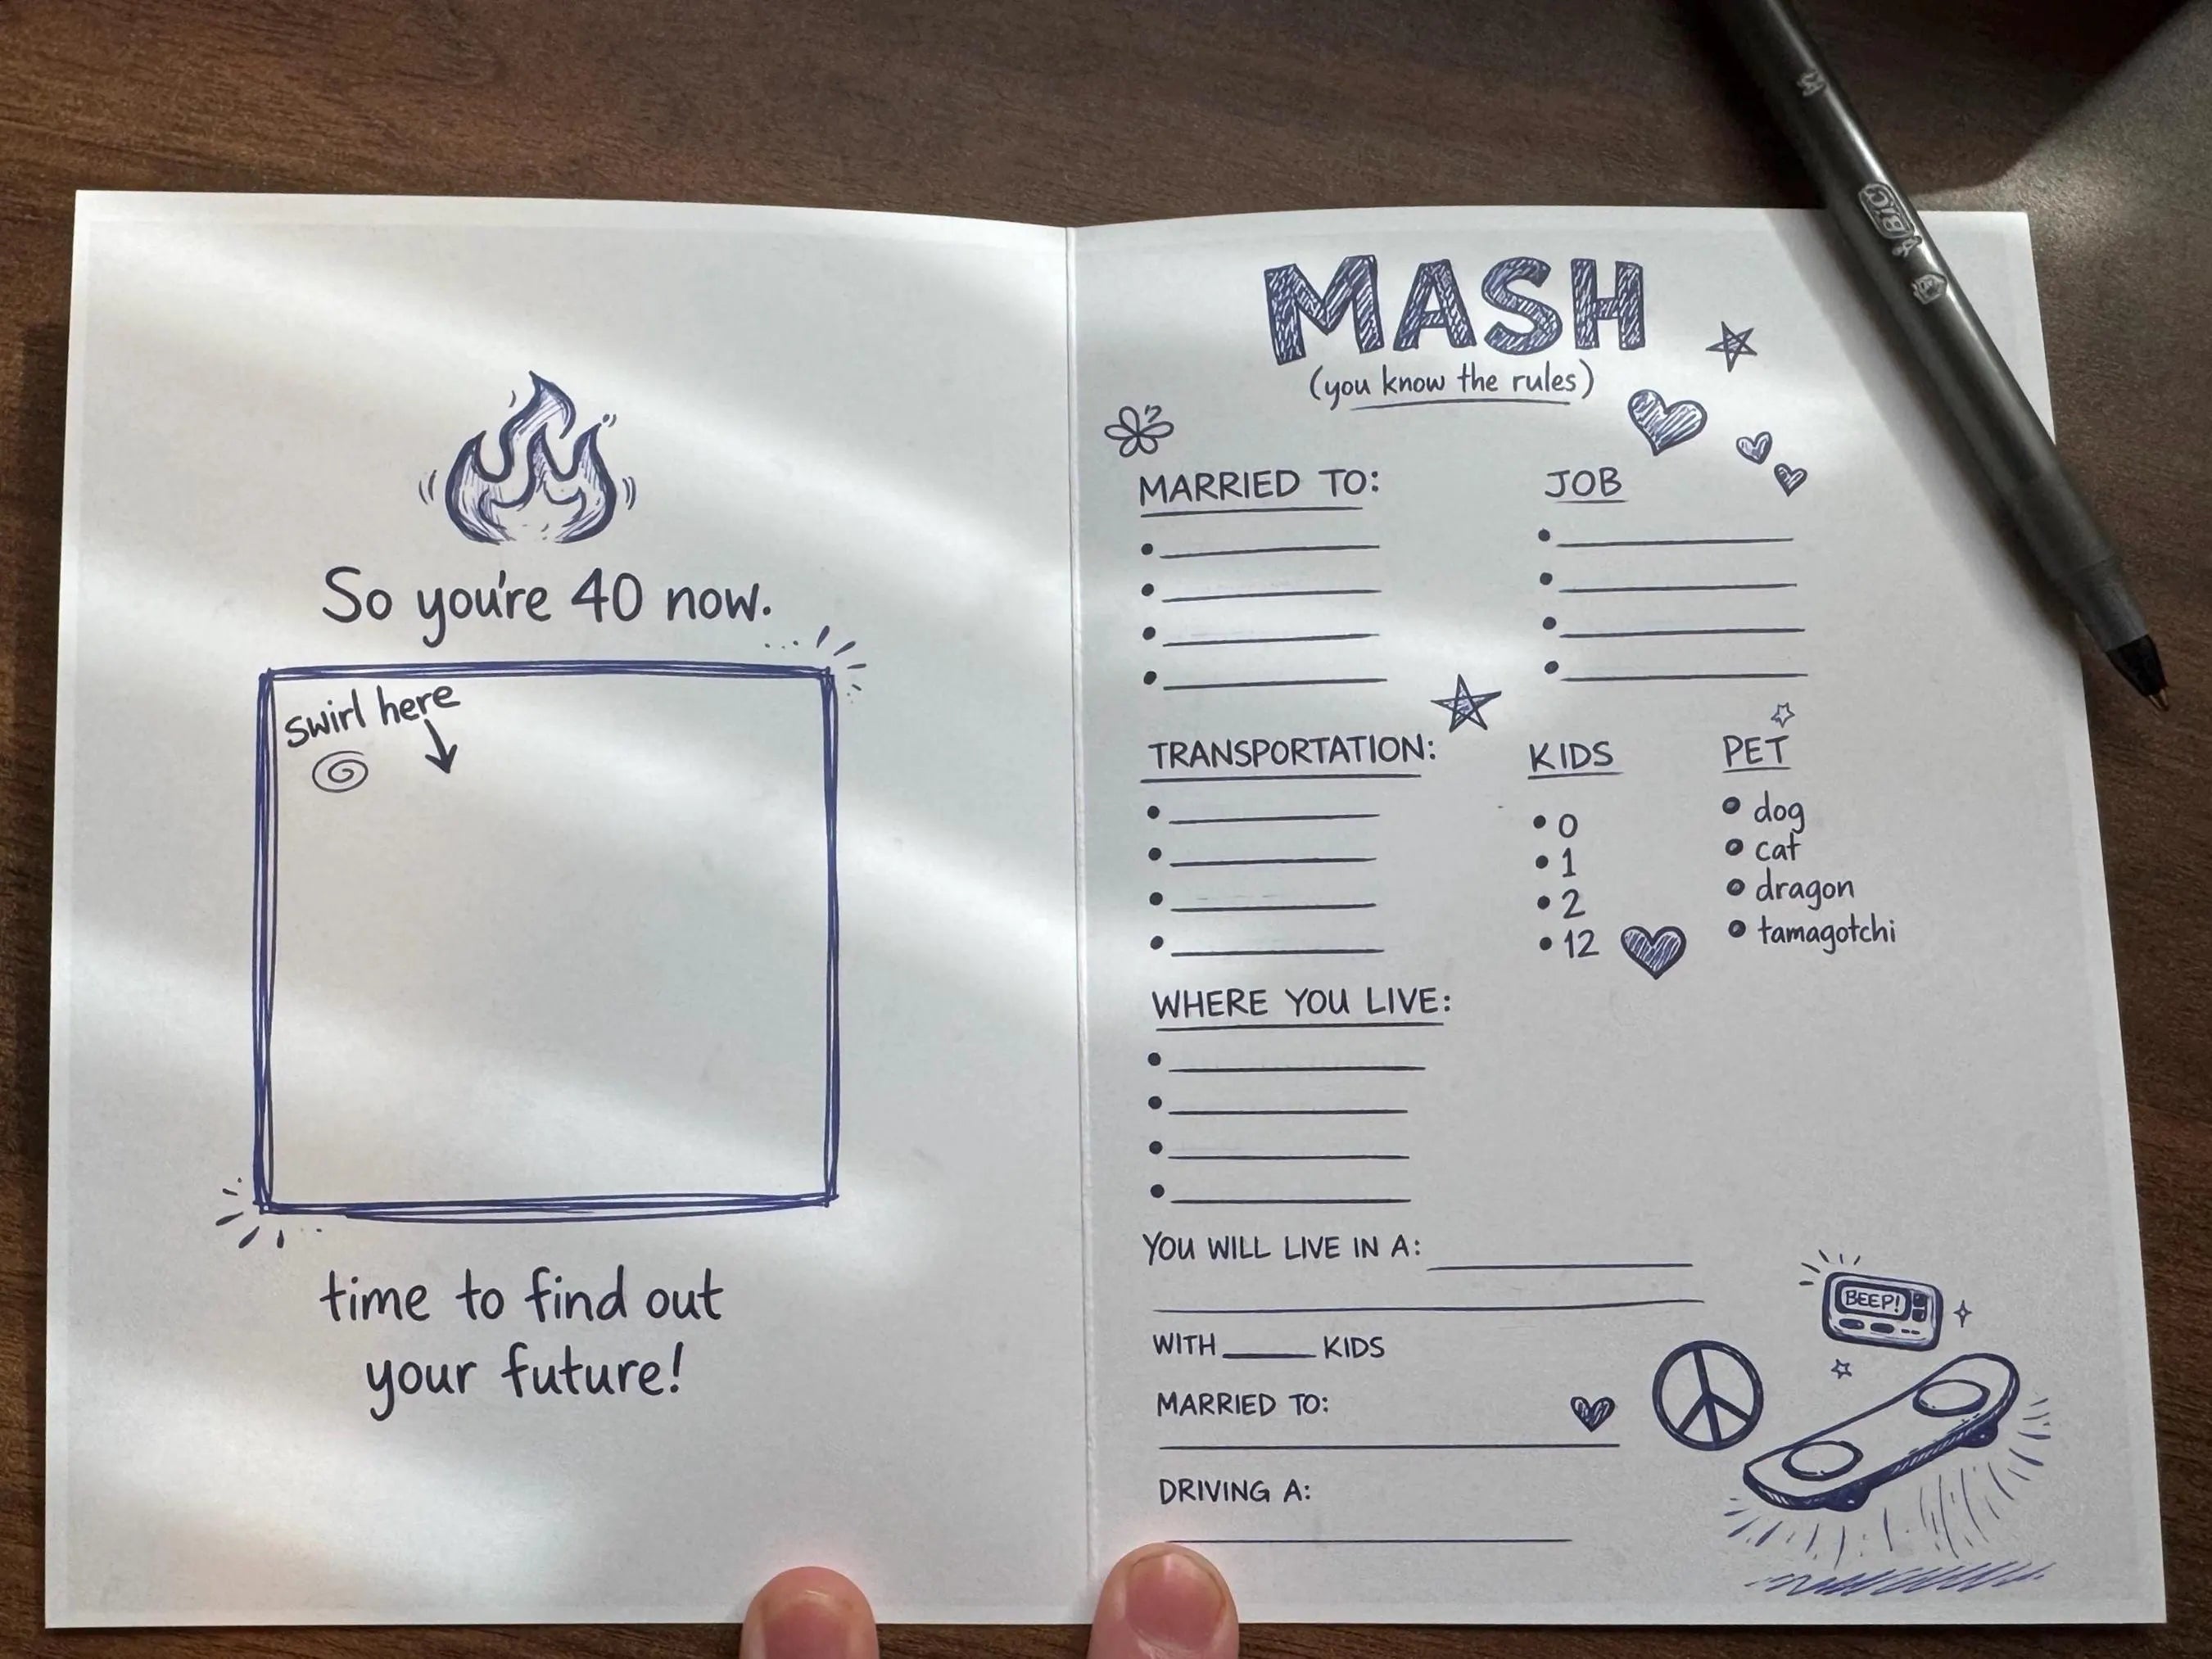 So you're 40 now.
swirl here
time to find out
your future!
MASH
(you know the rules)
MARRIED TO:
JOB
TRANSPORTATION:
KIDS
0
1
2
12
PET
dog
cat
dragon
tamagotchi
WHERE YOU LIVE:
YOU WILL LIVE IN A:
WITH KIDS
MARRIED TO:
DRIVING A:
BEEP!
BIC